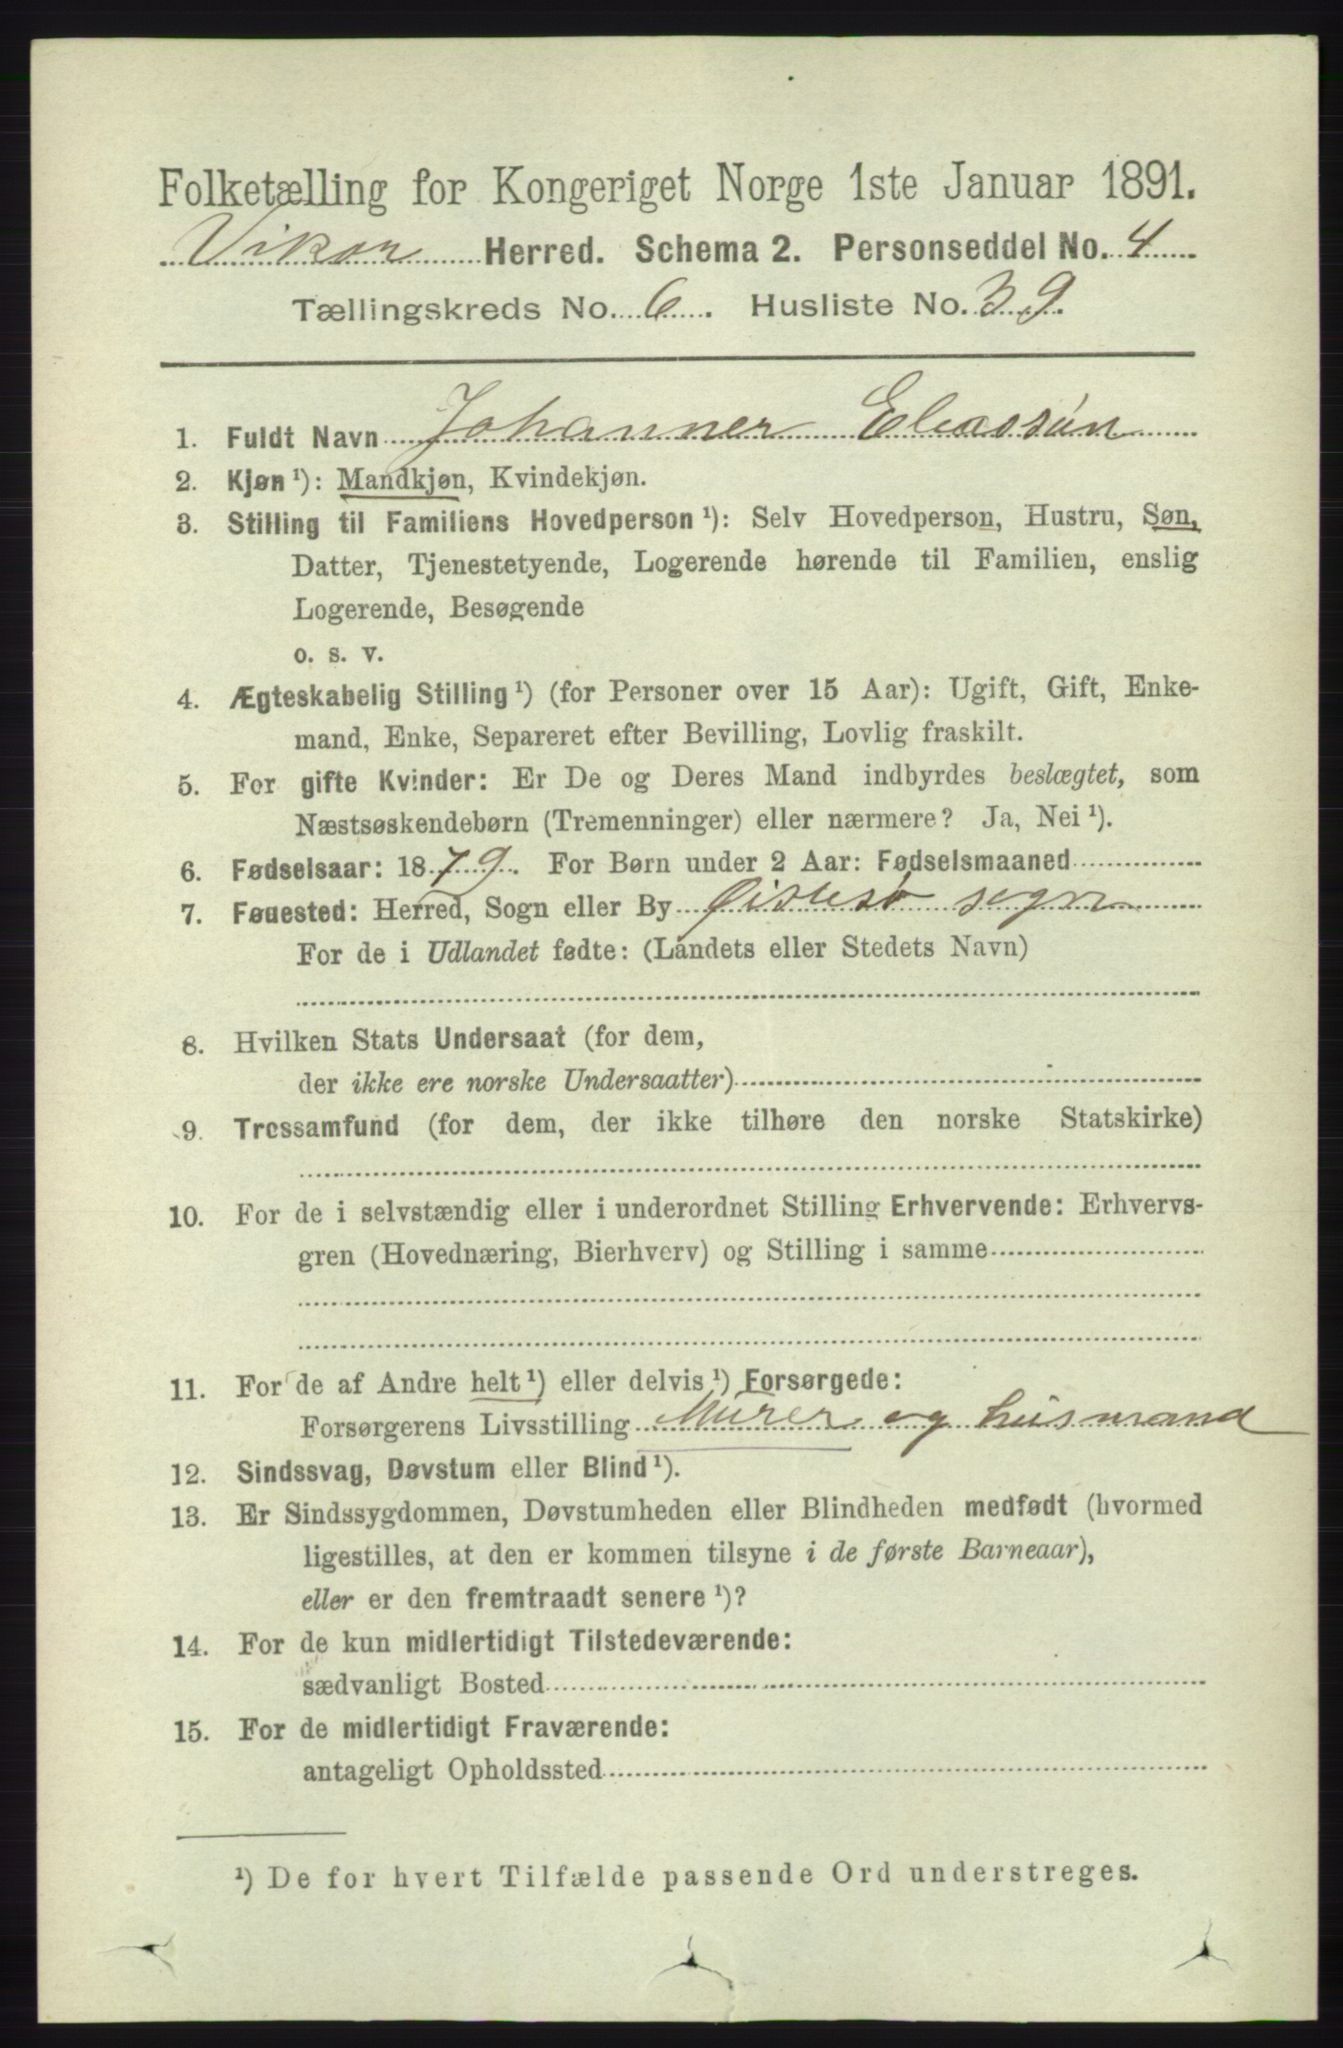 Folketælling for Kongeriget Norge 1ste Januar 1891.
Vikør Herred. Schema 2. Personseddel No. 4
Tællingskreds No. 6. Husliste No. 39.
1. Fuldt Navn Johannes Eliassøn
2. Kjøn ¹): Mandkjøn, Kvindekjøn.
3. Stilling til Familiens Hovedperson ¹): Selv Hovedperson, Hustru, Søn,
Datter, Tjenestetyende, Logerende hørende til Familien, enslig
Logerende, Besøgende
o. s. v.
4. Ægteskabelig Stilling ¹) (for Personer over 15 Aar): Ugift, Gift, Enke-
mand, Enke, Separeret efter Bevilling, Lovlig fraskilt.
5. For gifte Kvinder: Er De og Deres Mand indbyrdes beslægtet, som
Næstsøskendebørn (Tremenninger) eller nærmere? Ja, Nei ¹).
6. Fødselsaar: 1879. For Børn under 2 Aar: Fødselsmaaned
7. Føuested: Herred, Sogn eller By Østesø sogn
For de i Udlandet fødte: (Landets eller Stedets Navn)
8. Hvilken Stats Undersaat (for dem,
der ikke ere norske Undersaatter)
9. Trossamfund (for dem, der ikke tilhøre den norske Statskirke)
10. For de i selvstændig eller i underordnet Stilling Erhvervende: Erhvervs-
gren (Hovednæring, Bierhverv) og Stilling i samme
11. For de af Andre helt ¹) eller delvis ¹) Forsørgede:
Forsørgerens Livsstilling Murer og husmand
12. Sindssvag, Døvstum eller Blind ¹).
13. Er Sindssygdommen, Døvstumheden eller Blindheden medfødt (hvormed
ligestilles, at den er kommen tilsyne i de første Barneaar),
eller er den fremtraadt senere ¹)?
14. For de kun midlertidigt Tilstedeværende:
sædvanligt Bosted
15. For de midlertidigt Fraværende:
antageligt Opholdssted
¹) De for hvert Tilfælde passende Ord understreges.